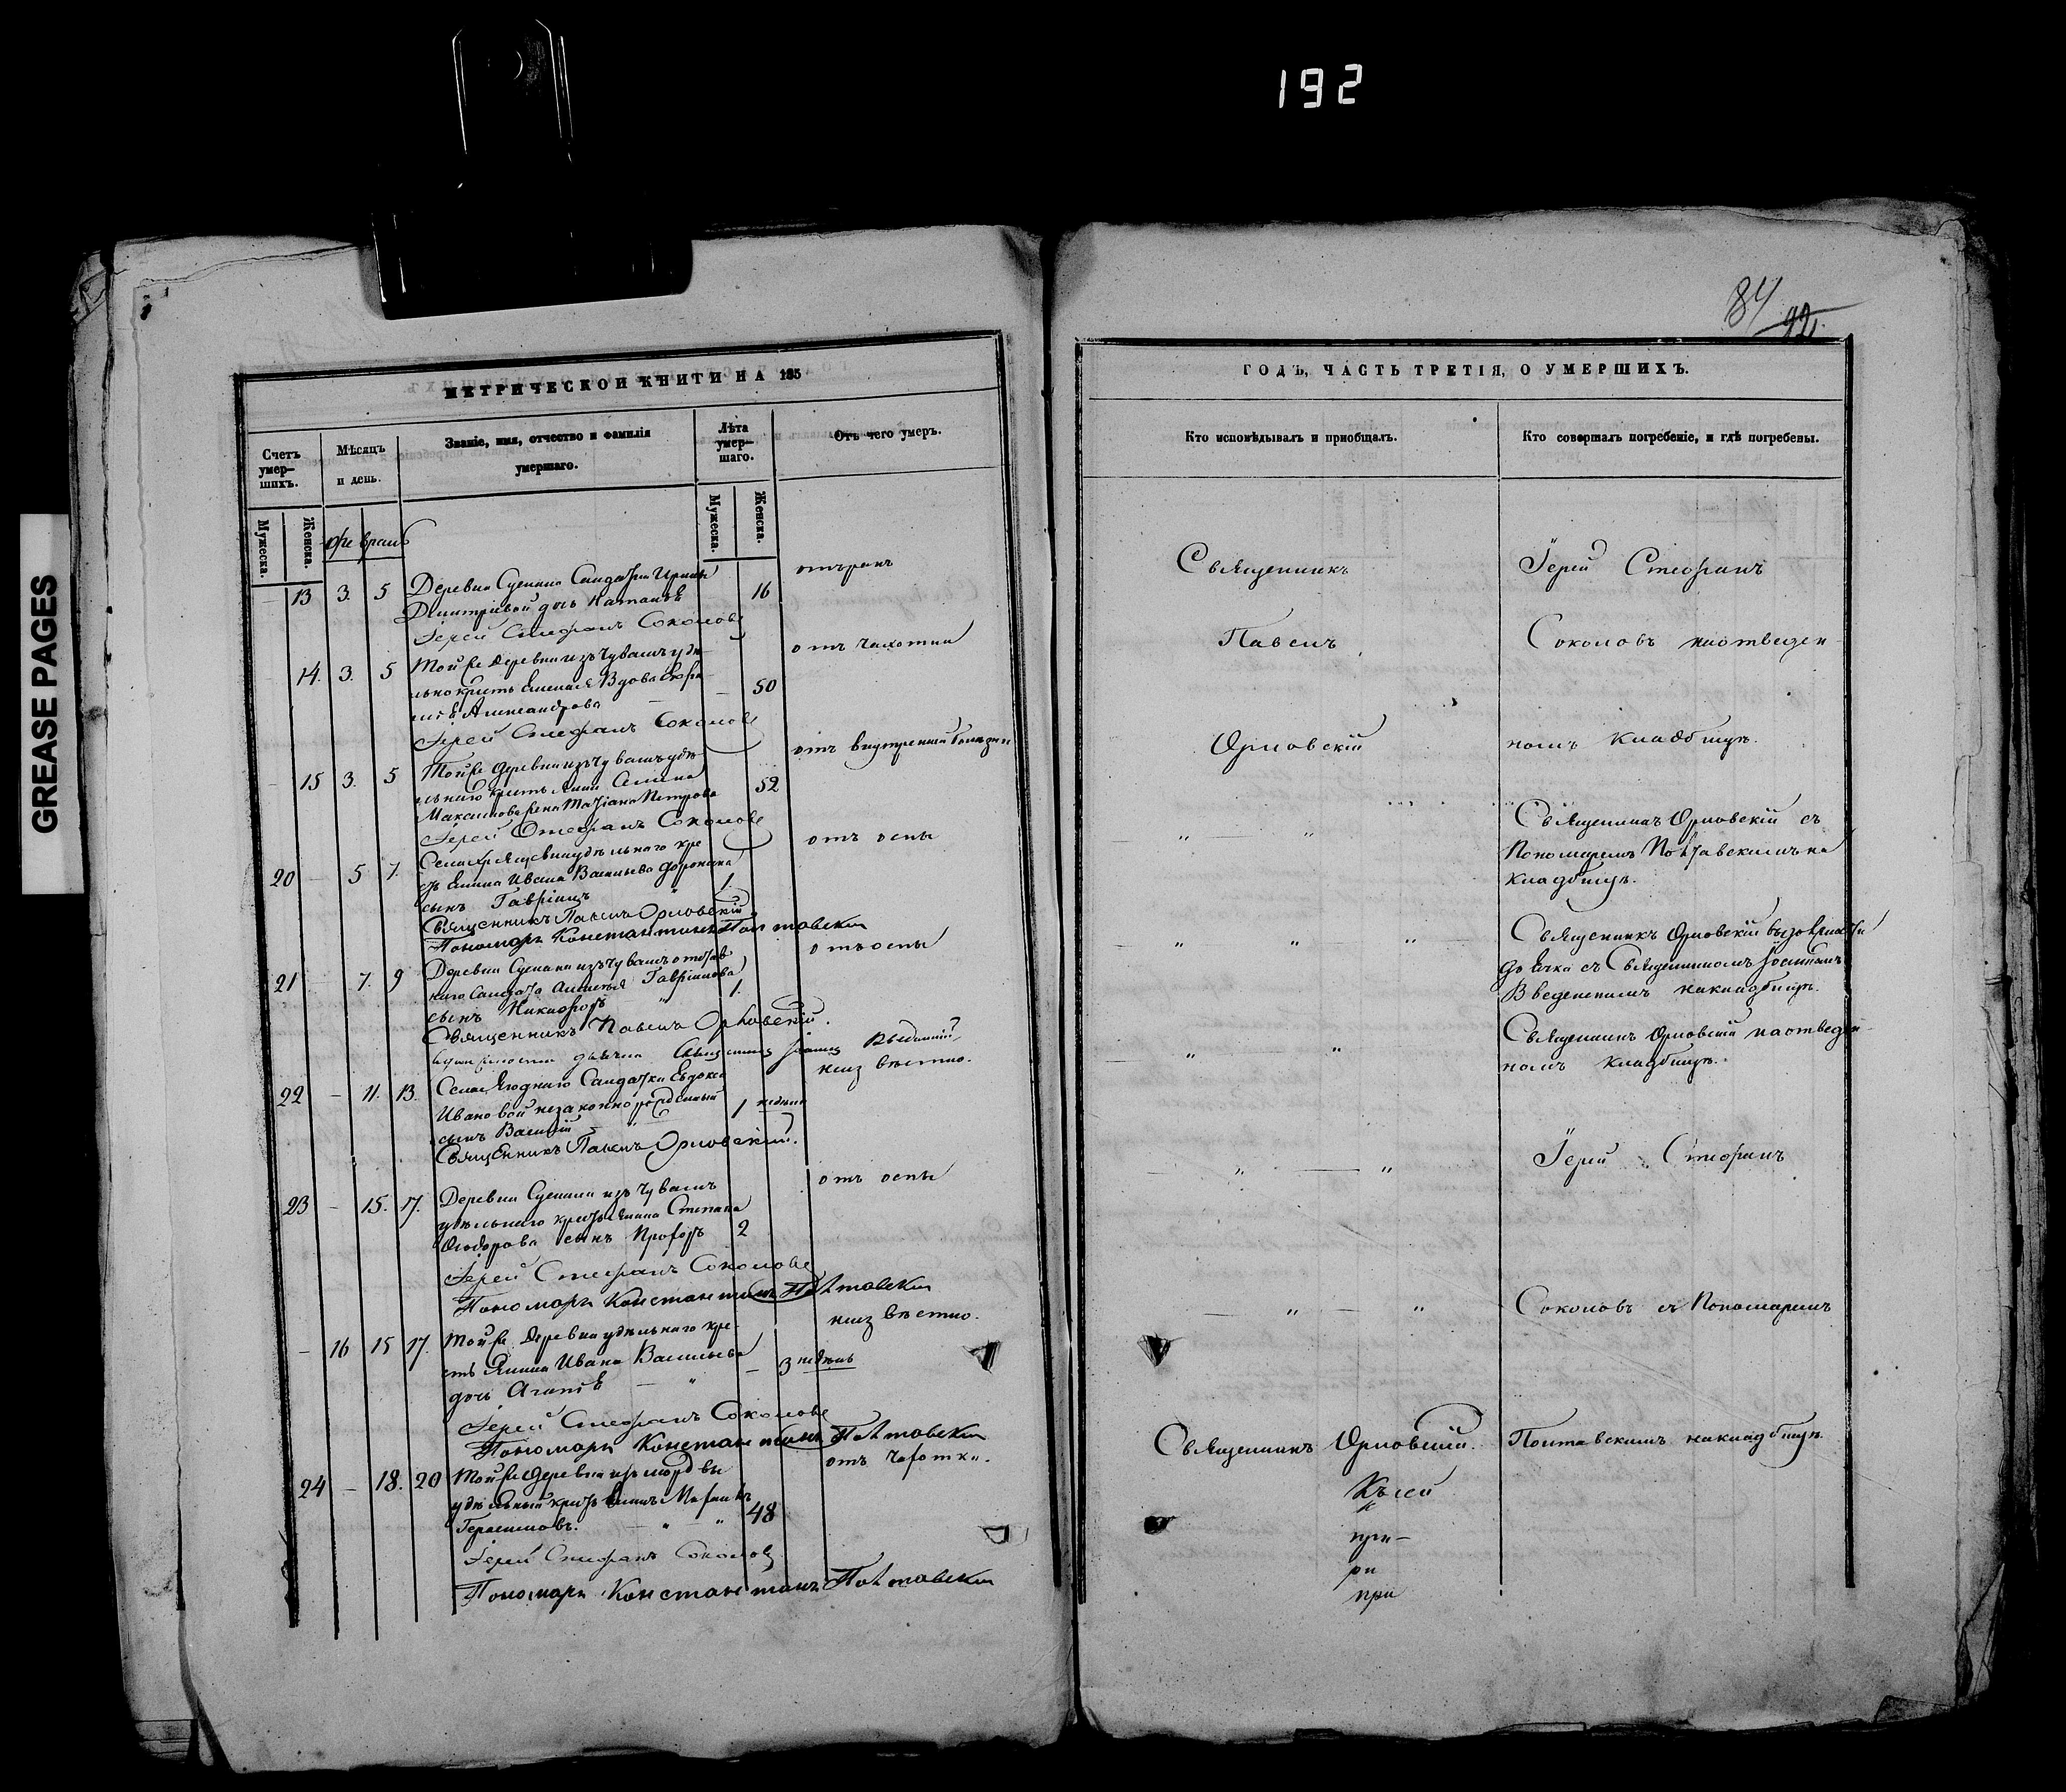 192
GREASE PAGES
84
92.
МЕТРИЧЕСКОЙ КНИГИ НА 185
Счетъ умер-
шихъ.
Мѣсяцъ
и день.
Званіе, имя, отчество и фамилія
умершаго.
Лѣта
умер-
шаго.
Отъ чего умеръ.
Мужеска.
Женска.
Мужеска.
Женска.
февраль
13 3. 5 Деревни Сускана Солдатки Ирины 16
Дмитріевой дочь
Іерей Стефанъ Соколовъ
14. 3. 5 Той же деревни изъ чувашъ удѣ- отъ чахотки
льно крестьянская вдова 50
Александрова
Іерей Стефанъ Соколовъ
15 3. 5 Той же деревни изъ чувашъ удѣ- отъ внутренней болезни
льнаго крестьянина 52
Максимова жена Татіана Петрова
Іерей Стефанъ Соколовъ
20 — 5 7. Села удѣльнаго кре- отъ оспы
стьянина Ивана Васильева
сынъ Гавріилъ 1
Священникъ Павелъ Орловскій
Пономарь Константинъ Полтавскій
21 7. 9 Деревни Сускана изъ чувашъ отъ оспы
Солдата Гавріилова
сынъ Никифоръ 1.
Священникъ Павелъ Орловскій.
22 — 11. 13. Села Ягоднаго Солдатки Евдокіи неизвѣстно.
Ивановой незаконнорожденный 1 недели
сынъ Василій
Священникъ Павелъ Орловскій.
23 — 15. 17. Деревни Сускана изъ чувашъ отъ оспы
удѣльнаго крестьянина Степана
Ѳеодорова сынъ Прохоръ 2
Іерей Стефанъ Соколовъ
Пономарь Константинъ Полтавскій
— 16 15 17. Той же деревни удѣльнаго кре- неизвѣстно.
стьянина Ивана Васильева — 3 недѣль
дочь
Іерей Стефанъ Соколовъ
Пономарь Константинъ Полтавскій
24 — 18. 20 Той же деревни изъ мордвы отъ чахотки.
удѣльный крестьянинъ 48
Герасимовъ.
Іерей Стефанъ Соколовъ
Пономарь Константинъ Полтавскій
ГОДЪ, ЧАСТЬ ТРЕТІЯ, О УМЕРШИХЪ.
Кто исповѣдывалъ и пріобщалъ.
Кто совершалъ погребеніе, и гдѣ погребены.
Священникъ Іерей Стефанъ
Павелъ Соколовъ на отведен-
Орловскій номъ кладбищѣ.
Священникъ Орловскій съ
Пономаремъ Полтавскимъ на
кладбищѣ.
Священникъ Орловскій
дьячка съ Священникомъ
Введенскимъ на кладбищѣ.
Священникъ Орловскій на отведен-
номъ кладбищѣ.
Іерей Стефанъ
Соколовъ съ Пономаремъ
Священникъ Орловскій. Полтавскимъ на кладбищѣ
Къ сей
при-
ри
при